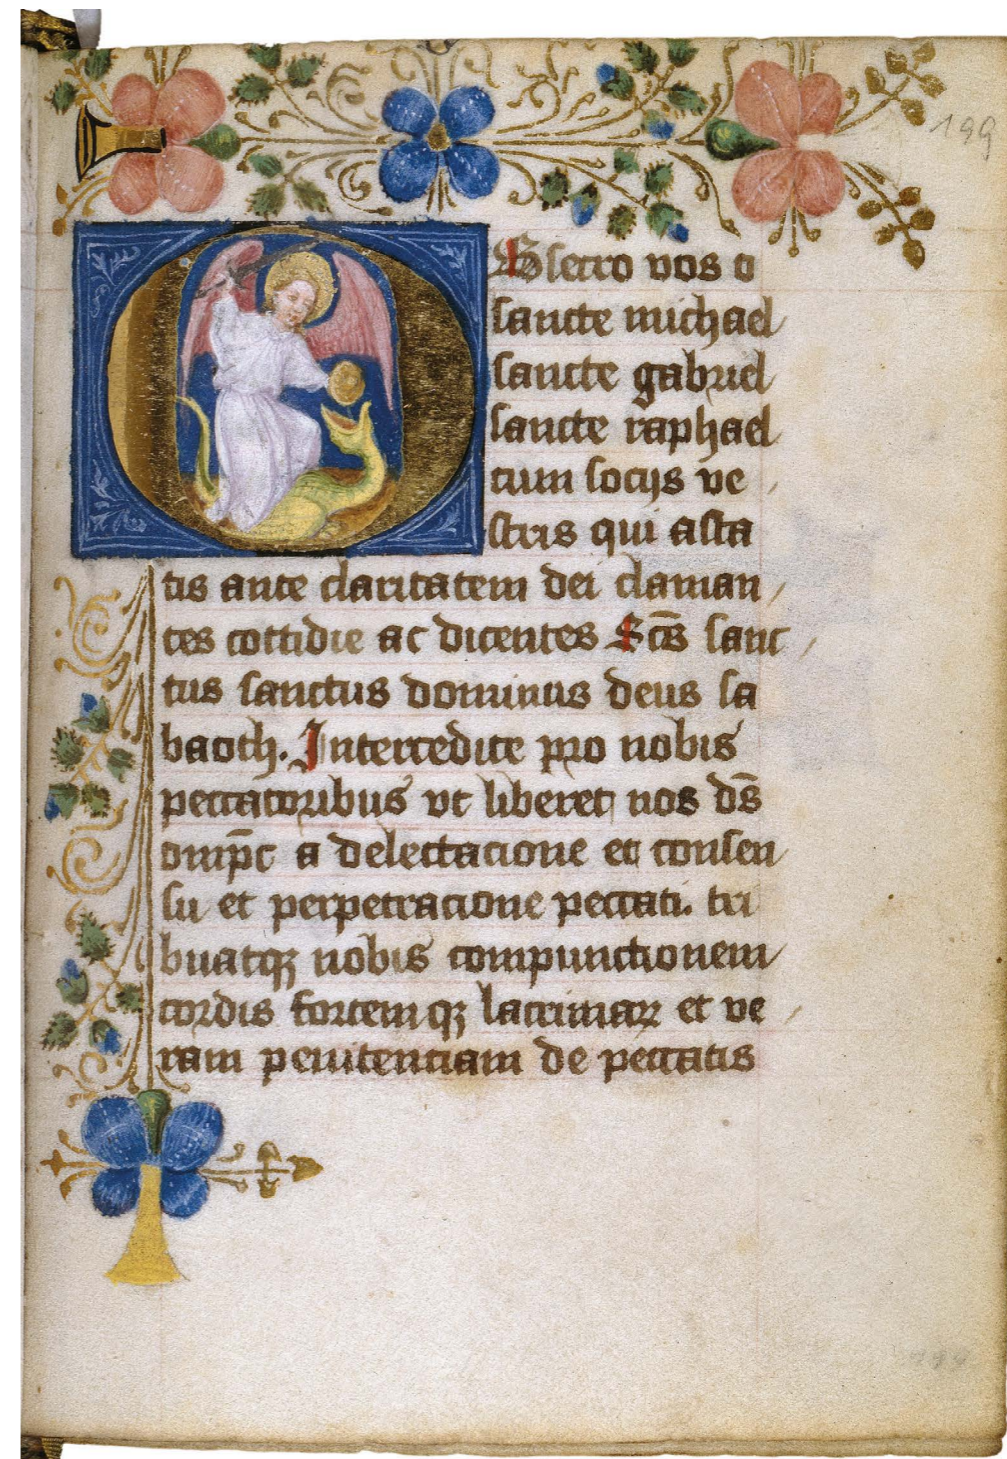 199
OBsecro vos o
sancte michael
sancte gabriel
sancte raphael
cum socijs ve
stris qui asta
tis ante claritatem dei claman
tes cottidie ac dicentes Sc̅s sanc
tus sanctus dominus deus sa
baoth. Intercedite pro nobis
peccatoribus vt liberet nos ds̅
omp̅c a delectacione et consen
su et perpetracione peccati. tri
buatqꝫ nobis compunctionem
cordis fortemqꝫ lacrimaꝝ et ve
ram penitenciam de peccatis